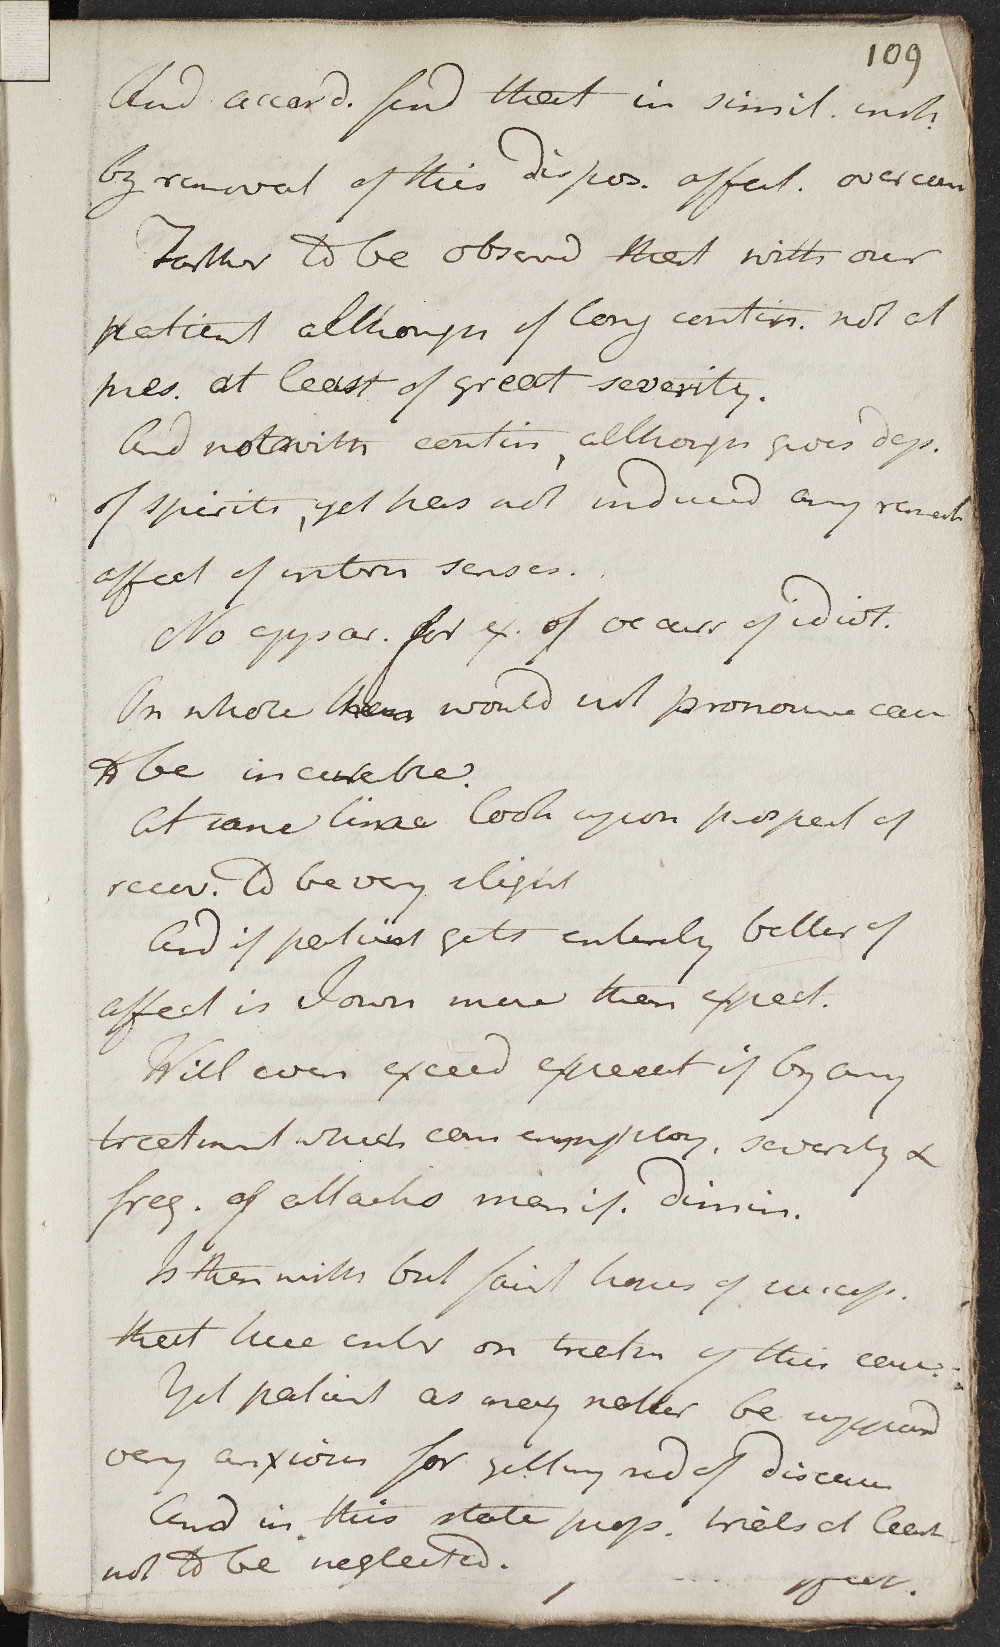 109
And accord. find that in simil. inst.
by removal of this dispos. affect. overcom
Farther to be observd that with our
patient although of long contin. not at
pres. at least of great severity.
And notwith contin, although gives dep.
of spirits, yet has not induced any remark
affect of intern senses.
No appear. for ex. of occurr of idiot.
On whole then would not pronounce case
to be incurable.
At same time look upon prospect of
recov. to be very slight
And if patient gets entirely better of
affect is I own more than expect.
Will even exceed expect if by any
treatment which can employ. severity &
freq. of attacks manif. dimin.
Is then with but faint hopes of success.
that here enter on treatm of this case.
Yet patient as may natur be supposd
very anxious for getting rid of disease
And in this state prop. trials at least
not to be neglected.